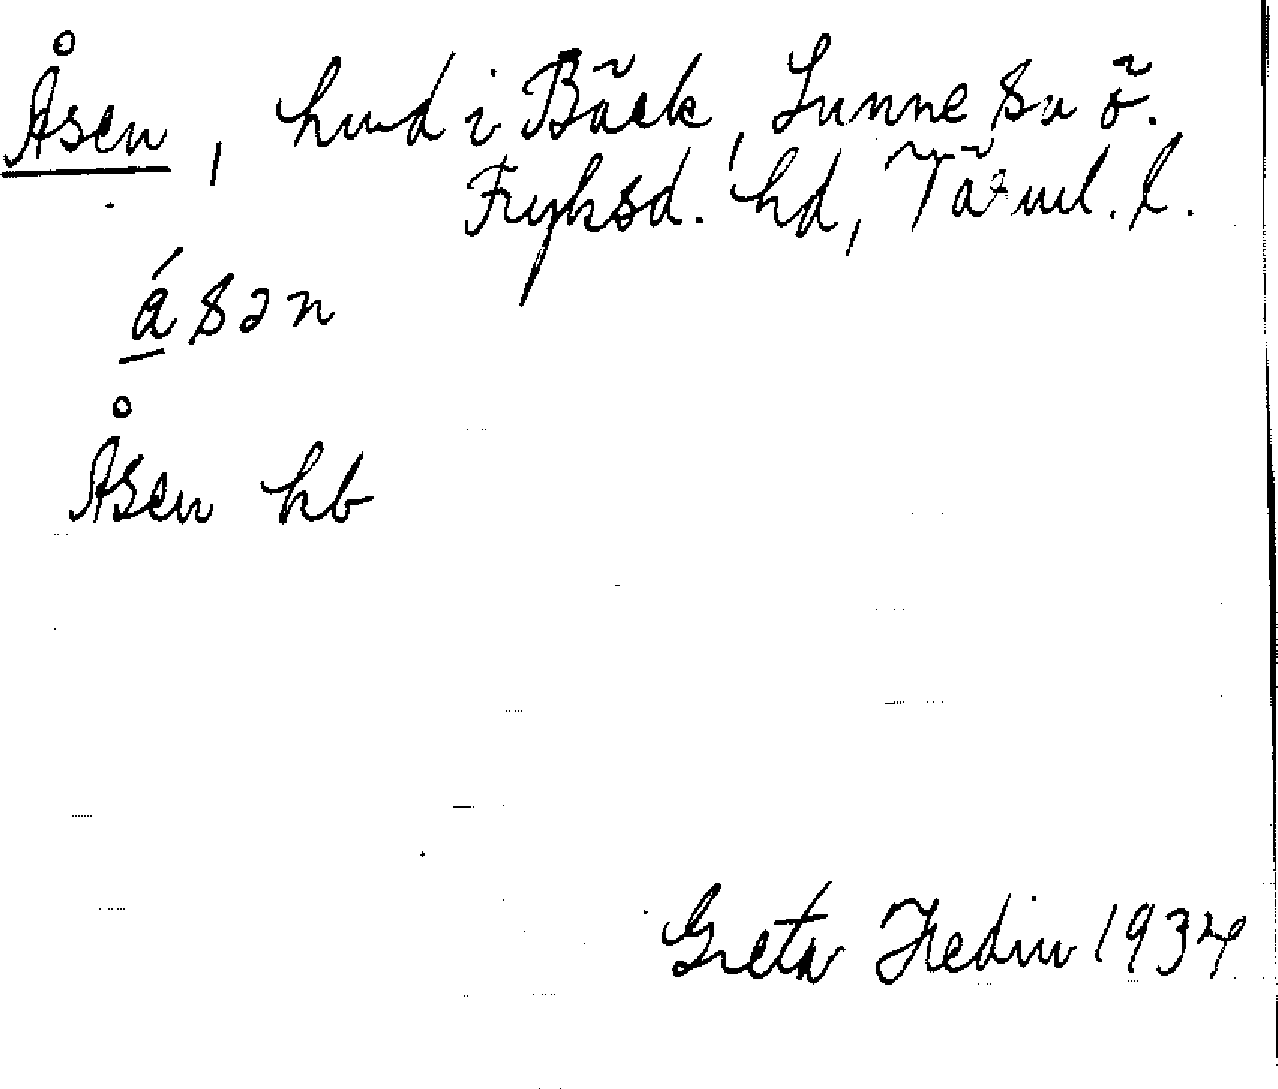 Åsen, hmd i Bäck, Sunne sn ö.
Fryksd. hd, Värml. l.
ásən
Åsen hb
Greta Hedin 1934